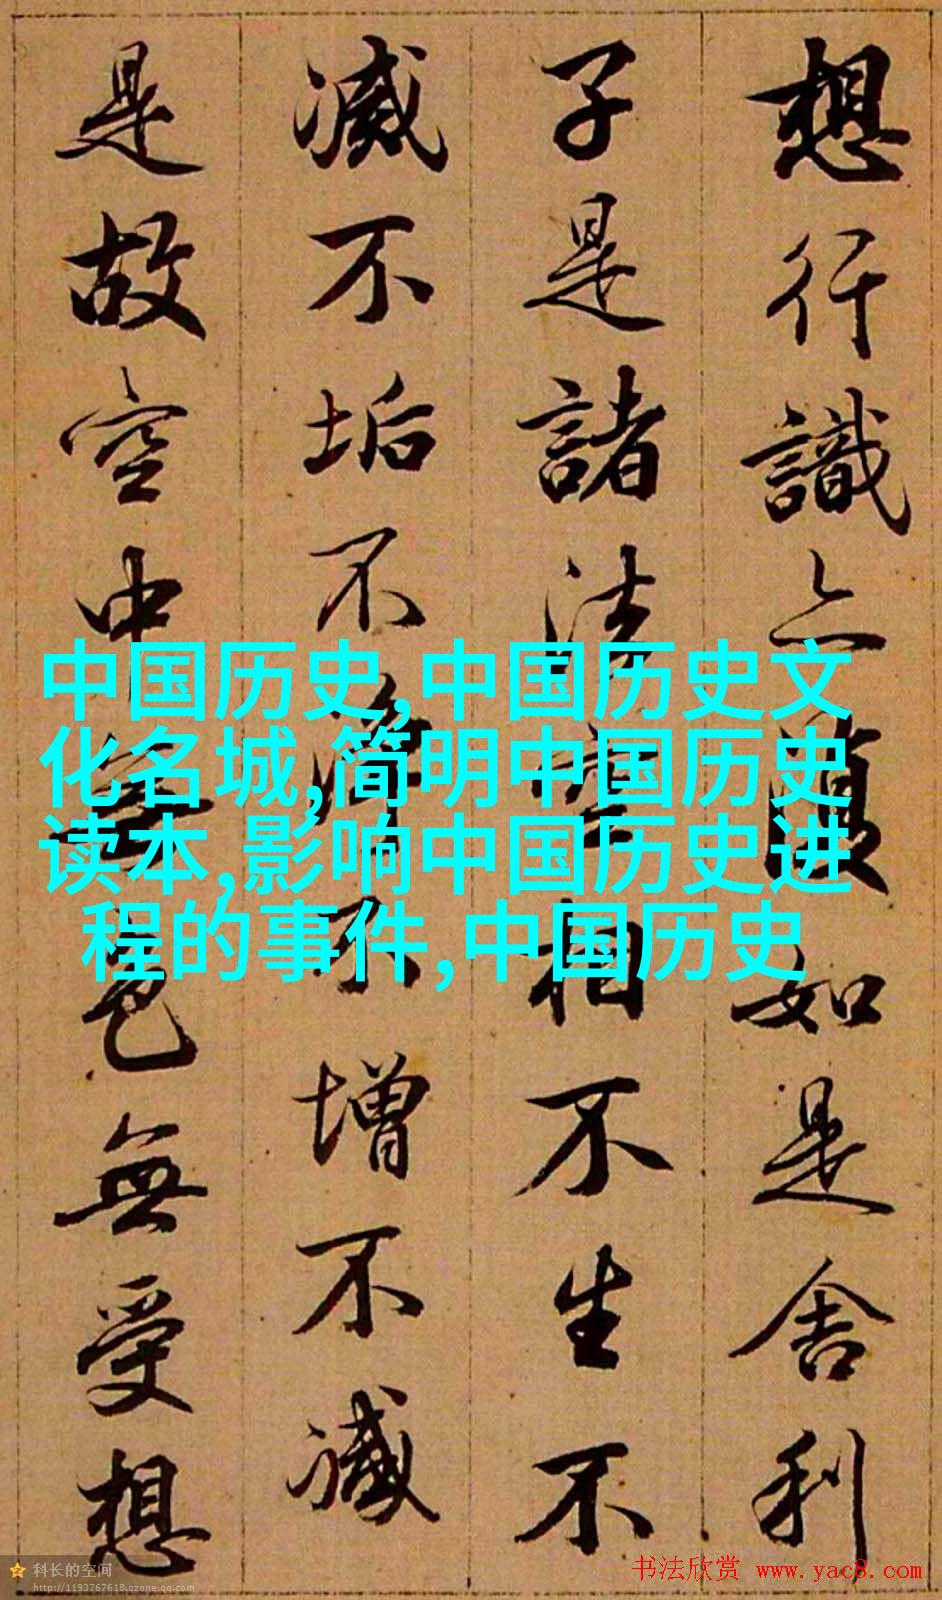 想行識亦復如是舍利
子是諸法空相不生不
滅不垢不淨不增不減
是故空中無色無受想
中国历史,中国历史文
化名城,简明中国历史
读本,影响中国历史进
程的事件,中国历史
科长的空间
http://1193767618.qzone.qq.com
书法欣赏 www.yac8.com